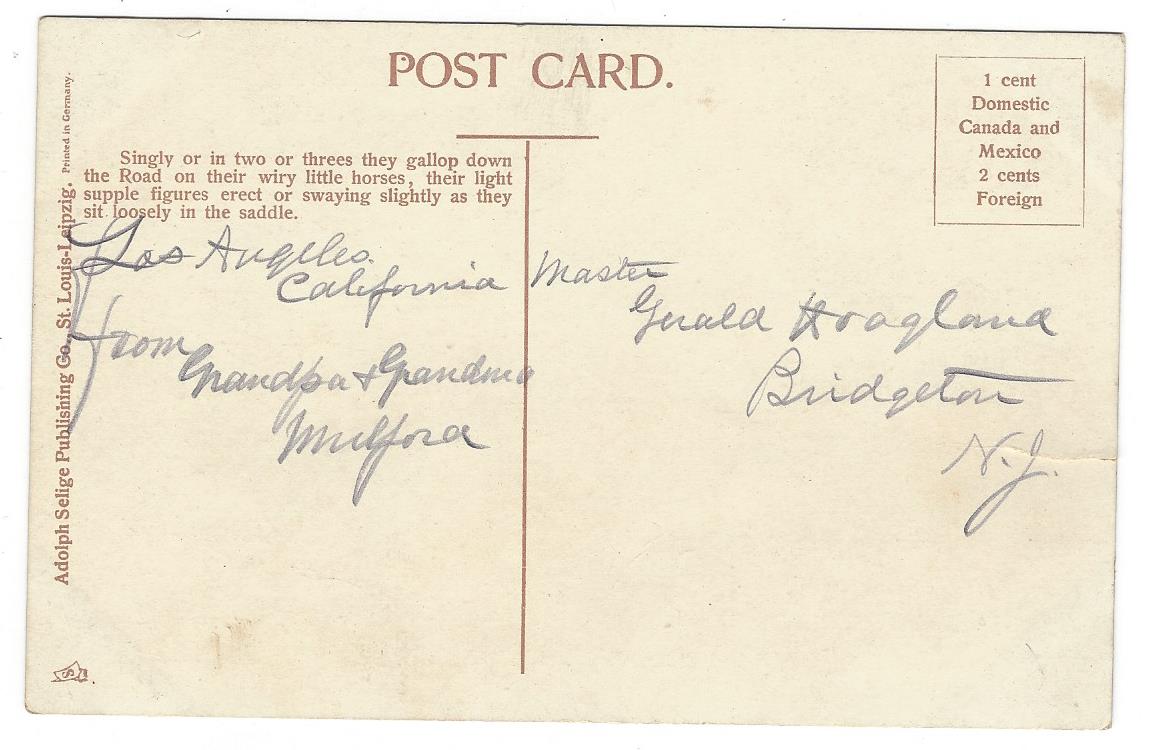 POST CARD.
1 cent
Domestic
Canada and
Mexico
2 cents
Foreign
Singly or in two or threes they gallop down
the Road on their wiry little horses, their light
supple figures erect or swaying slightly as they
sit loosely in the saddle.
Los Angeles
California
from
Grandpa & Grandma
Mulford
Master
Gerald Hoagland
Bridgeton
N.J.
Adolph Selige Publishing Co., St. Louis-Leipzig. Printed in Germany.
S